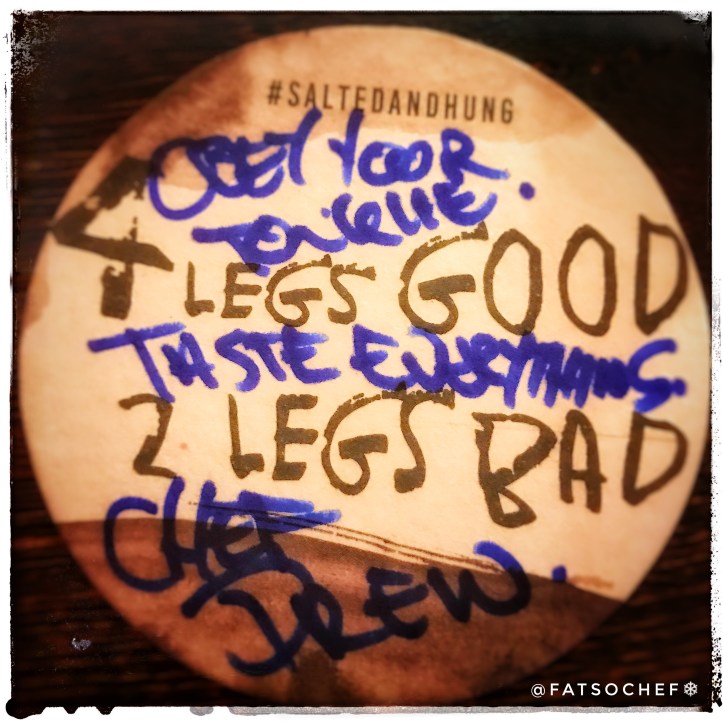 #SALTEDANDHUNG
OBEY YOUR
TONGUE.
4 LEGS GOOD
TASTE EVERYTHING.
2 LEGS BAD
CHEF
DREW.
@FATSOCHEF❄